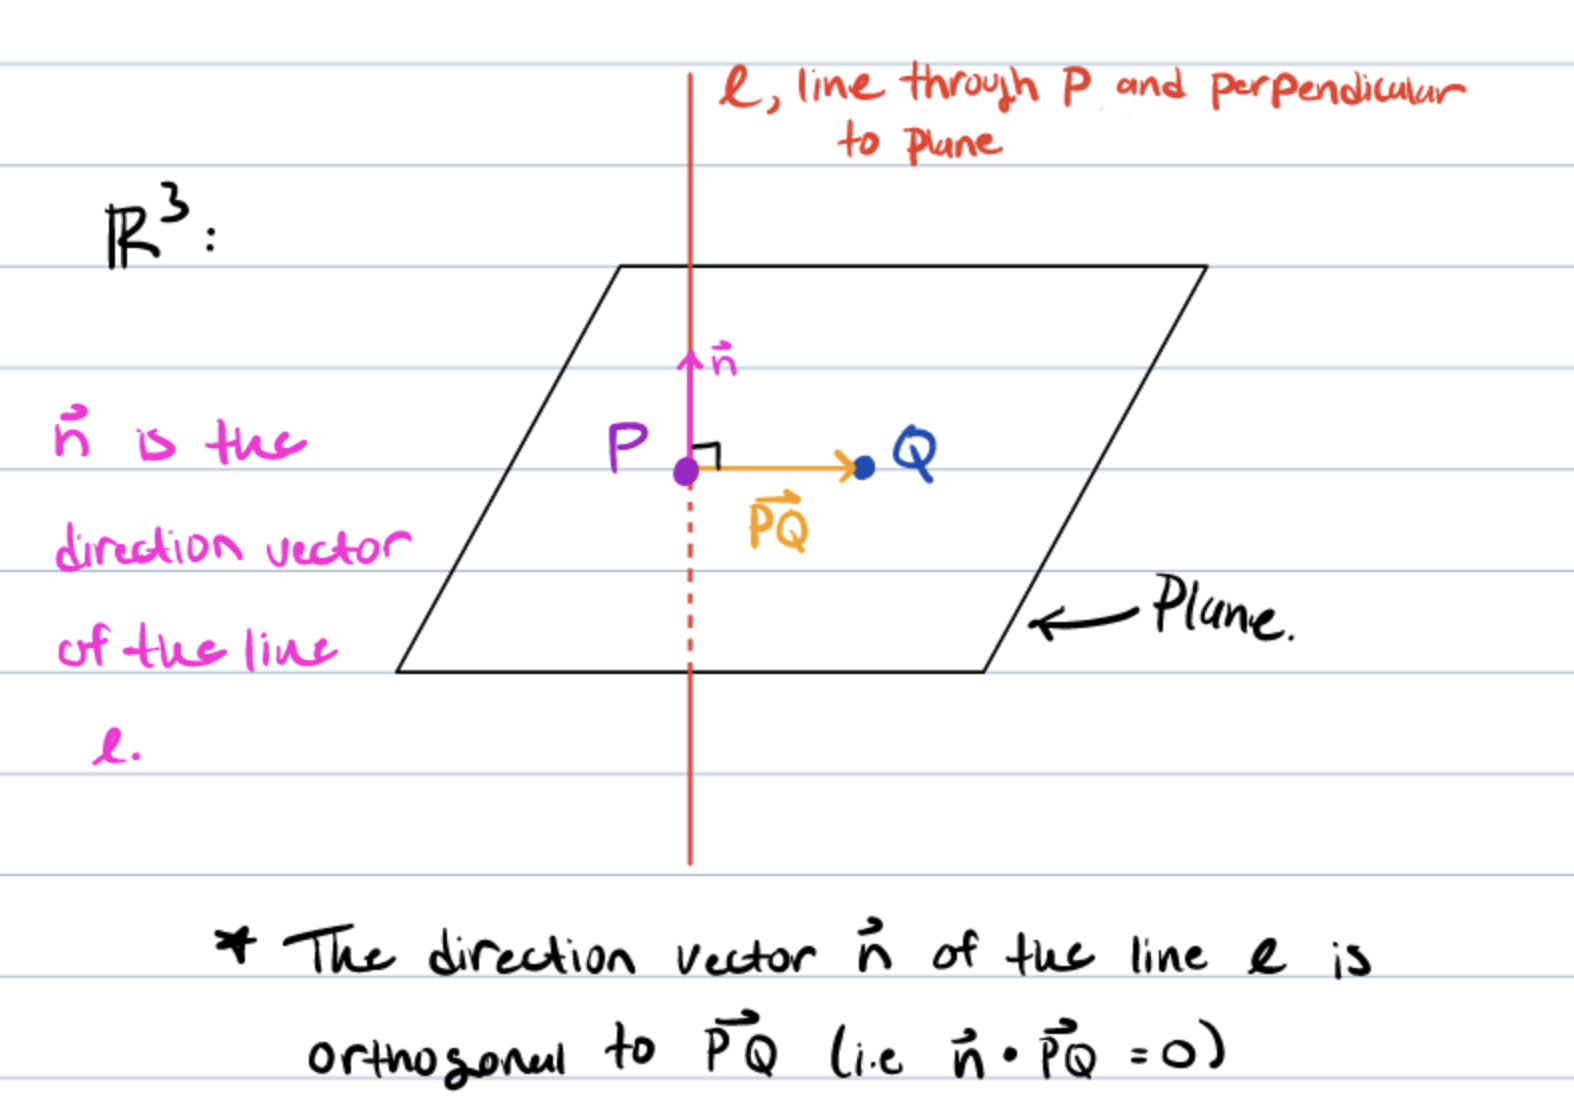 ℓ, line through P and perpendicular
to plane
ℝ³:
n⃗
P
Q
n⃗ is the
PQ⃗
direction vector
Plane.
of the line
ℓ.
* The direction vector n⃗ of the line ℓ is
orthogonal to PQ⃗ (i.e n⃗ • PQ⃗ = 0)